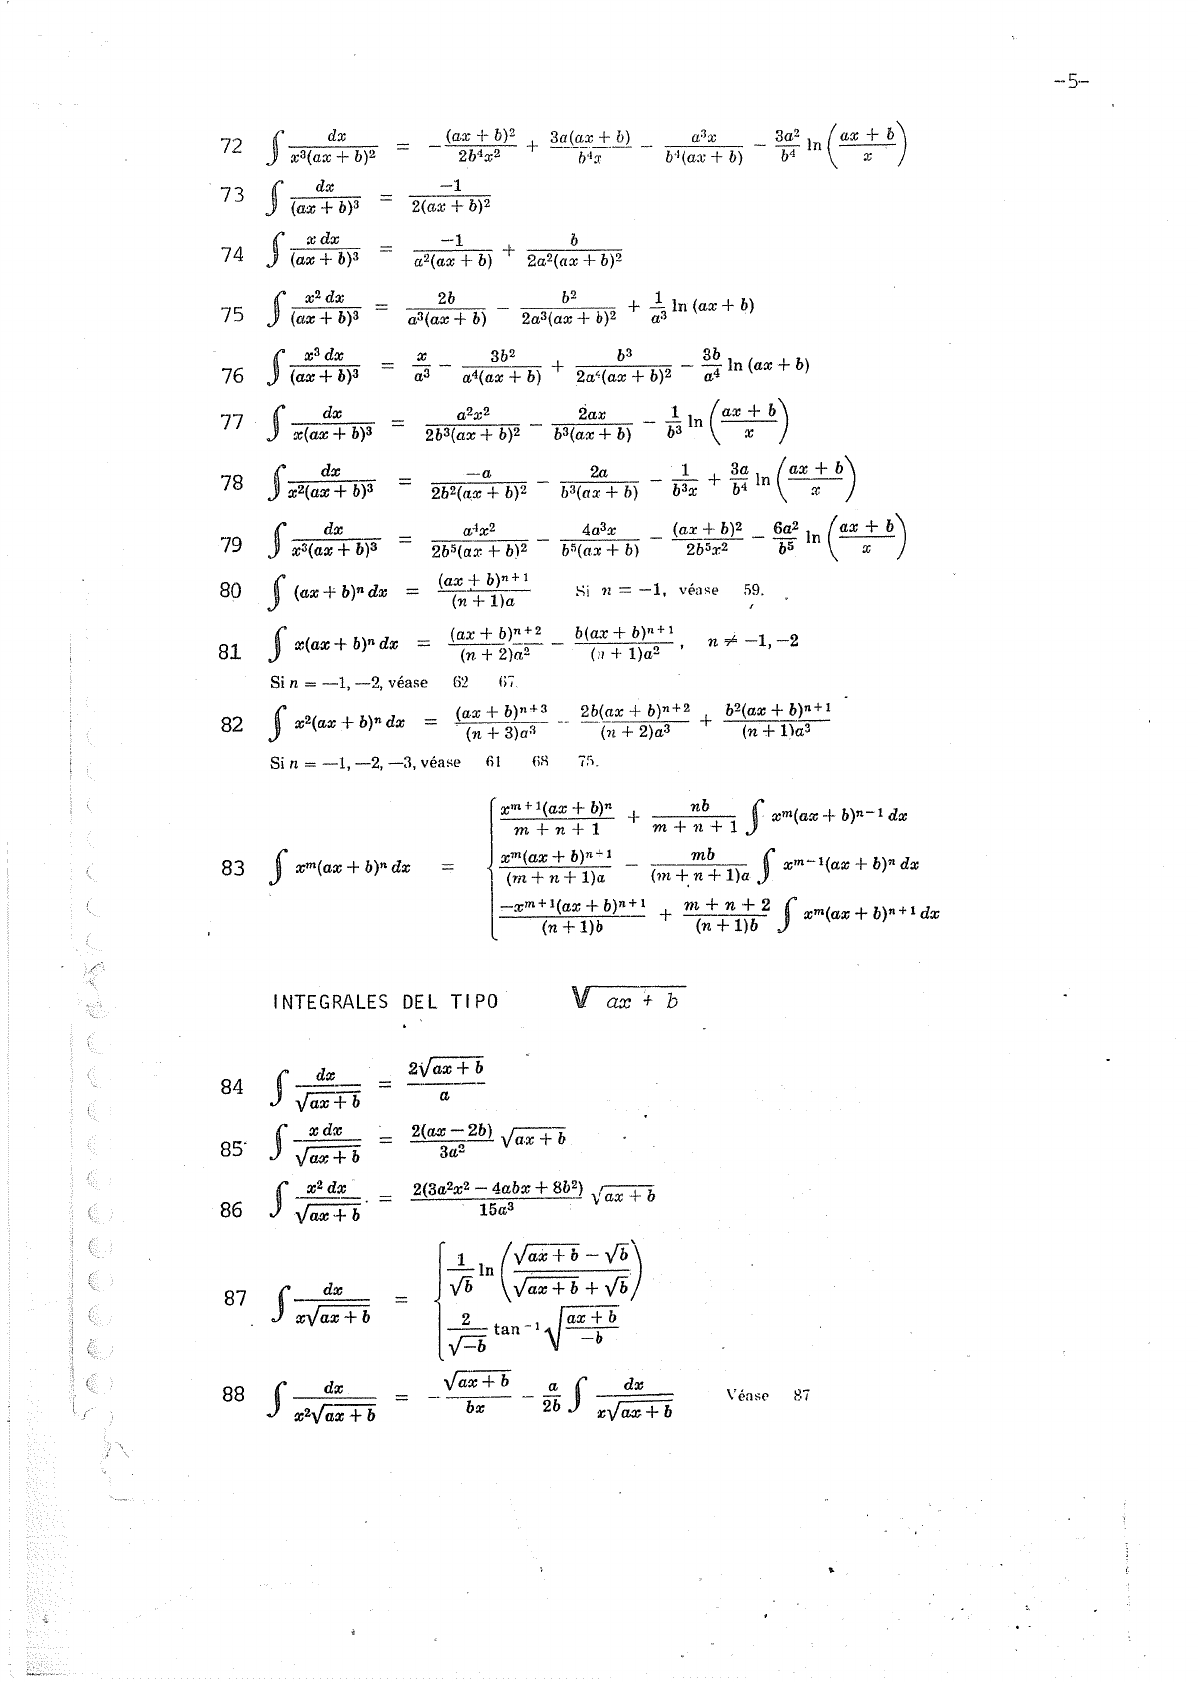 --5--
72 ∫ dx / x³(ax + b)² = −(ax + b)² / 2b⁴x² + 3a(ax + b) / b⁴x − a³x / b⁴(ax + b) − 3a² / b⁴ ln ( ax + b / x )
73 ∫ dx / (ax + b)³ = −1 / 2(ax + b)²
74 ∫ x dx / (ax + b)³ = −1 / a²(ax + b) + b / 2a²(ax + b)²
75 ∫ x² dx / (ax + b)³ = 2b / a³(ax + b) − b² / 2a³(ax + b)² + 1 / a³ ln (ax + b)
76 ∫ x³ dx / (ax + b)³ = x / a³ − 3b² / a⁴(ax + b) + b³ / 2a⁴(ax + b)² − 3b / a⁴ ln (ax + b)
77 ∫ dx / x(ax + b)³ = a²x² / 2b³(ax + b)² − 2ax / b³(ax + b) − 1 / b³ ln ( ax + b / x )
78 ∫ dx / x²(ax + b)³ = −a / 2b²(ax + b)² − 2a / b³(ax + b) − 1 / b³x + 3a / b⁴ ln ( ax + b / x )
79 ∫ dx / x³(ax + b)³ = a⁴x² / 2b⁵(ax + b)² − 4a³x / b⁵(ax + b) − (ax + b)² / 2b⁵x² − 6a² / b⁵ ln ( ax + b / x )
80 ∫ (ax + b)ⁿ dx = (ax + b)ⁿ⁺¹ / (n + 1)a Si n = −1, véase 59.
81 ∫ x(ax + b)ⁿ dx = (ax + b)ⁿ⁺² / (n + 2)a² − b(ax + b)ⁿ⁺¹ / (n + 1)a² , n ≠ −1, −2
Si n = —1, —2, véase 62 67.
82 ∫ x²(ax + b)ⁿ dx = (ax + b)ⁿ⁺³ / (n + 3)a³ − 2b(ax + b)ⁿ⁺² / (n + 2)a³ + b²(ax + b)ⁿ⁺¹ / (n + 1)a³
Si n = —1, —2, —3, véase 61 68 75.
83 ∫ xᵐ(ax + b)ⁿ dx = { xᵐ⁺¹(ax + b)ⁿ / m + n + 1 + nb / m + n + 1 ∫ xᵐ(ax + b)ⁿ⁻¹ dx
xᵐ(ax + b)ⁿ⁺¹ / (m + n + 1)a − mb / (m + n + 1)a ∫ xᵐ⁻¹(ax + b)ⁿ dx
−xᵐ⁺¹(ax + b)ⁿ⁺¹ / (n + 1)b + m + n + 2 / (n + 1)b ∫ xᵐ(ax + b)ⁿ⁺¹ dx
INTEGRALES DEL TIPO √ ax + b
84 ∫ dx / √(ax + b) = 2√(ax + b) / a
85 ∫ x dx / √(ax + b) = 2(ax − 2b) / 3a² √(ax + b)
86 ∫ x² dx / √(ax + b) = 2(3a²x² − 4abx + 8b²) / 15a³ √(ax + b)
87 ∫ dx / x√(ax + b) = { 1 / √b ln ( √(ax + b) − √b / √(ax + b) + √b )
2 / √−b tan⁻¹ √( ax + b / −b )
88 ∫ dx / x²√(ax + b) = − √(ax + b) / bx − a / 2b ∫ dx / x√(ax + b) Véase 87